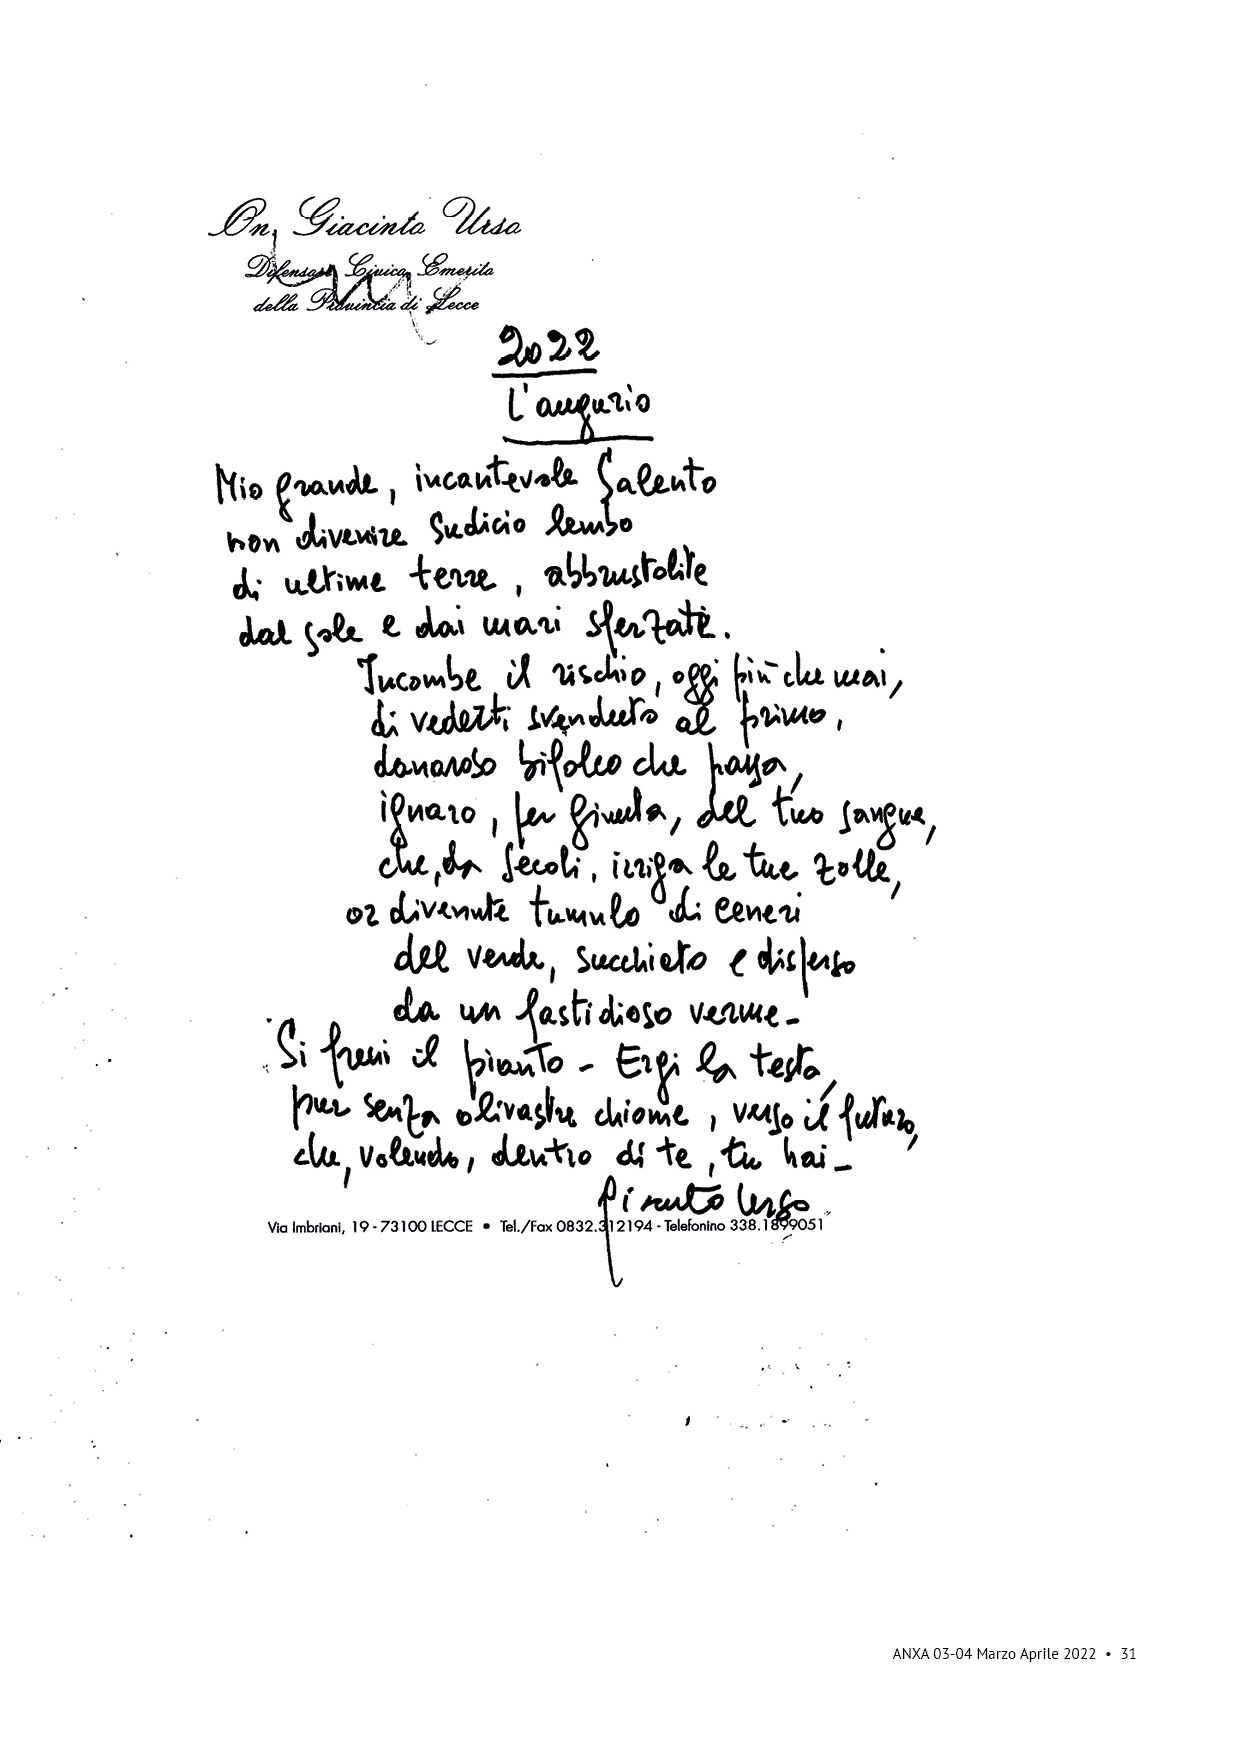 On. Giacinto Urso
Difensore Civico Emerito
della Provincia di Lecce
2022
L'augurio
Mio grande, incantevole Salento
non divenire sudicio lembo
di ultime terre, abbrustolite
dal sole e dai mari sferzate.
Incombe il rischio, oggi più che mai,
di vederti svenduto al primo,
danaroso bifolco che paga,
ignaro, per giunta, del tuo sangue,
che, da secoli, irriga le tue zolle,
or divenute tumulo di ceneri
del verde, succhiato e disperso
da un fastidioso verme -
Si freni il pianto - Ergi la testa,
pur senza olivastre chiome, verso il futuro,
che, volendo, dentro di te, tu hai -
Giacinto Urso
Via Imbriani, 19 - 73100 LECCE • Tel./Fax 0832.312194 - Telefonino 338.1899051
ANXA 03-04 Marzo Aprile 2022 • 31